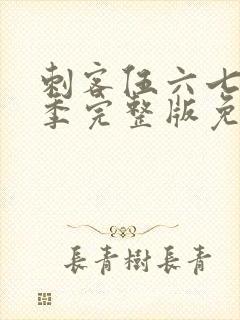 刺客伍六七
季完整版免
長青樹長青